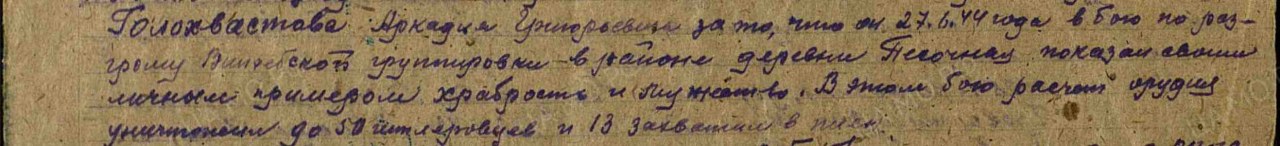 Голохвастова Аркадия Григорьевича за то, что он 27.6.44 года в бою по раз-
грому Витебской группировки в районе деревни Песочная показал своим
личным примером храбрость и мужество. В этом бою расчет орудия
уничтожил до 50 гитлеровцев и 13 захватил в плен